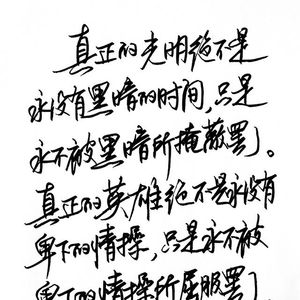 真正的光明绝不是
永没有黑暗的时间,只是
永不被黑暗所掩蔽罢了。
真正的英雄绝不是永没有
卑下的情操,只是永不被
卑下的情操所屈服罢了